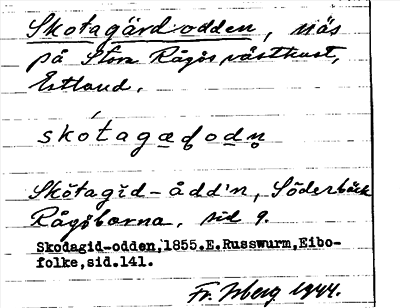 Skotagärd-odden, näs
på Stora Rågös västkust,
Estland.
skótagæḍọdṇ
Skŏtagĭd-ådd'n, Söderbäck
Rågöborna, sid 9.
Skodagid-odden,1855.E.Russwurm,Eibo-
folke,sid.141.
Fr. Iberg 1944.